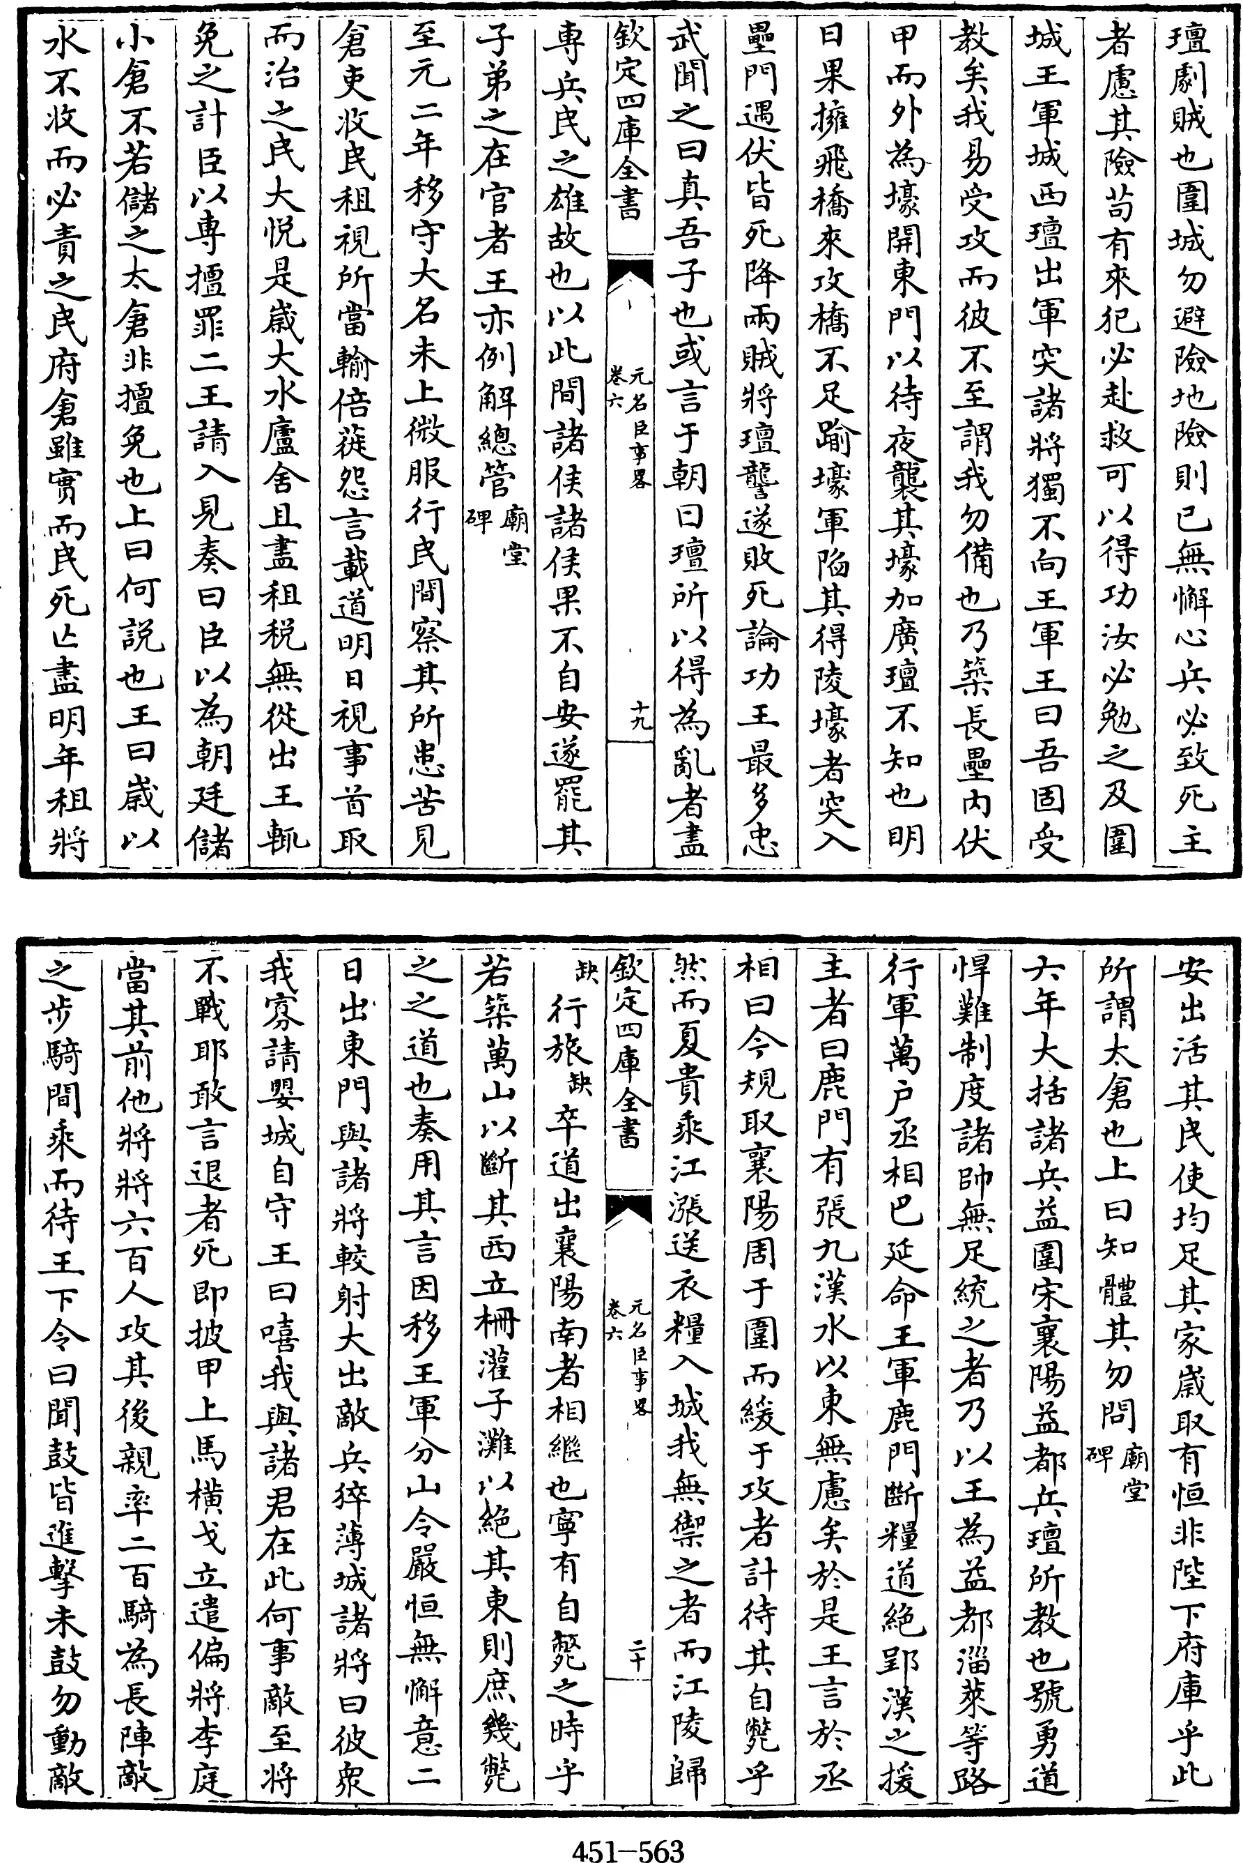 璮劇賊也圍城勿避險地險則己無懈心兵必致死主
者慮其險苟有來犯必赴救可以得功汝必勉之及圍
城王軍城西璮出軍突諸將獨不向王軍王曰吾固受
教矣我易受攻而彼不至謂我勿備也乃築長壘內伏
甲而外為壕開東門以待夜襲其壕加廣璮不知也明
日果擁飛橋來攻橋不足踰壕軍陷其得陵壕者突入
壘門遇伏皆死降兩賊將璮讋遂敗死論功王最多忠
武聞之曰真吾子也或言于朝曰璮所以得為亂者盡
欽定四庫全書
元名臣事畧
卷六
十九
専兵民之雄故也以此間諸侯諸侯果不自安遂罷其
子弟之在官者王亦例解總管廟堂碑
至元二年移守大名未上微服行民間察其所患苦見
倉吏收民租視所當輸倍蓰怨言載道明日視事首取
而治之民大悅是嵗大水廬舍且盡租稅無從出王輒
免之計臣以専擅罪二王請入見奏曰臣以為朝廷儲
小倉不若儲之太倉非擅免也上曰何說也王曰嵗以
水不收而必責之民府倉雖實而民死亡盡明年租將
安出活其民使均足其家嵗取有恒非陛下府庫乎此
所謂太倉也上曰知體其勿問廟堂碑
六年大括諸兵益圍宋襄陽益都兵璮所教也號勇道
悍難制度諸帥無足統之者乃以王為益都淄萊等路
行軍萬户丞相巴延命王軍鹿門斷糧道絕郢漢之援
主者曰鹿門有張九漢水以東無慮矣於是王言於丞
相曰今規取襄陽周于圍而緩于攻者計待其自斃乎
然而夏貴乘江漲送衣糧入城我無禦之者而江陵歸
欽定四庫全書
元名臣事畧
卷六
二十
缺行旅缺卒道出襄陽南者相繼也寧有自斃之時乎
若築萬山以斷其西立柵灌子灘以絕其東則庶幾斃
之之道也奏用其言因移王軍分山令嚴恒無懈意二
日出東門與諸將較射大出敵兵猝薄城諸將曰彼衆
我寡請嬰城自守王曰嘻我與諸君在此何事敵至將
不戰耶敢言退者死即披甲上馬橫戈立遣偏將李庭
當其前他將將六百人攻其後親率二百騎為長陣敵
之步騎間乘而待王下令曰聞鼓皆進擊未鼓勿動敵
451-563